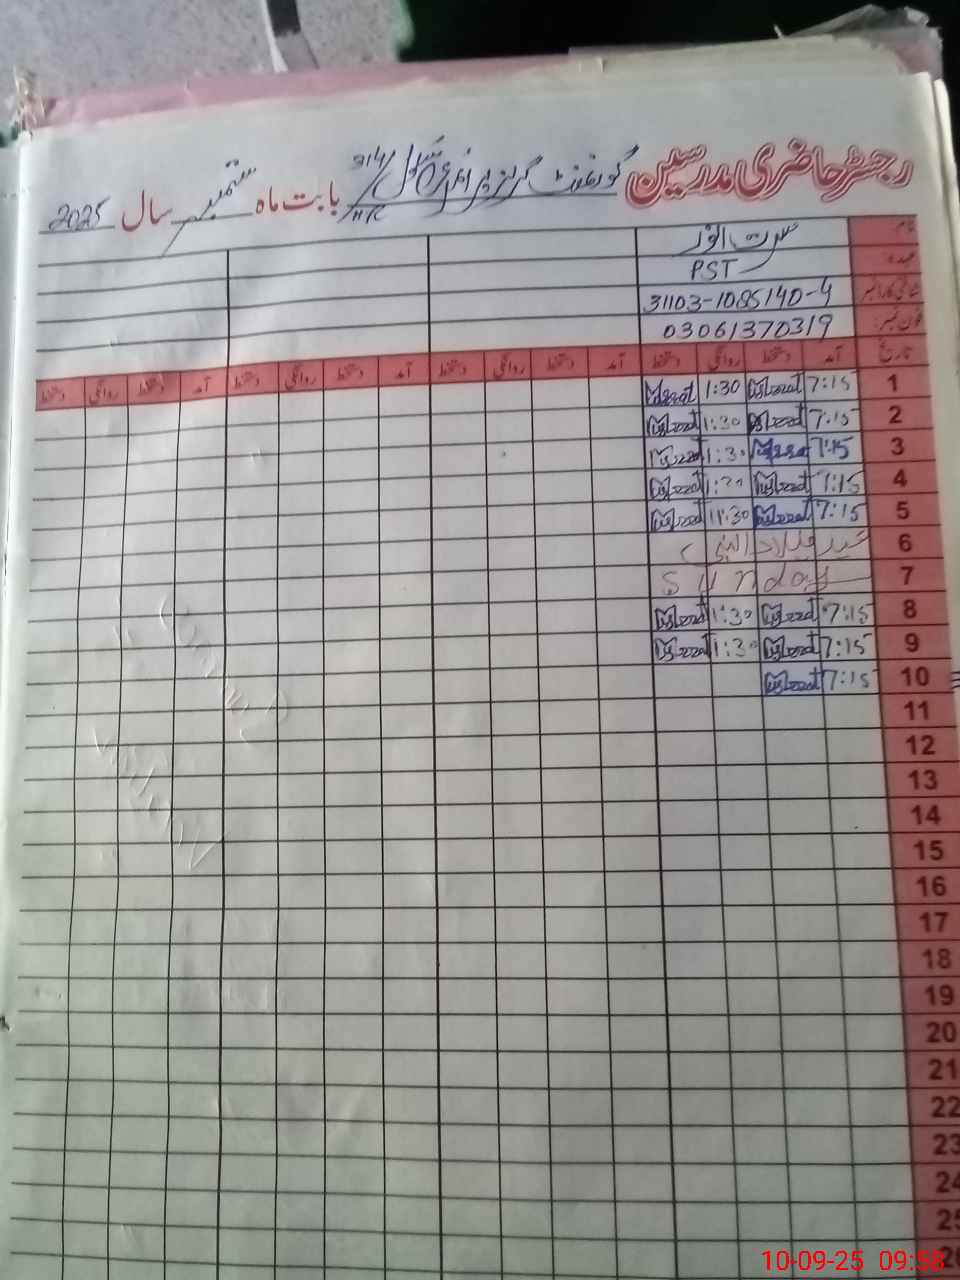 رجسٹر حاضری مدرسین گورنمنٹ گرلز پرائمری سکول 314/HR بابت ماہ ستمبر سال 2025
نام: مسرت انور
عہدہ: PST
شناختی کارڈ نمبر 31103-1085140-4
فون نمبر: 03061370319
تاریخ آمد دستخط روانگی دستخط آمد دستخط روانگی دستخط آمد دستخط روانگی دستخط آمد دستخط روانگی دستخط
1 7:15 Musrrat 1:30 Musrrat
2 7:15 Musrrat 1:30 Musrrat
3 7:15 Musrrat 1:30 Musrrat
4 7:15 Musrrat 1:30 Musrrat
5 7:15 Musrrat 11:30 Musrrat
6 عید میلاد النبی
7 Sunday
8 7:15 Musrrat 1:30 Musrrat
9 7:15 Musrrat 1:30 Musrrat
10 7:15 Musrrat
11
12
13
14
15
16
17
18
19
20
21
22
23
24
25
26
10-09-25 09:58